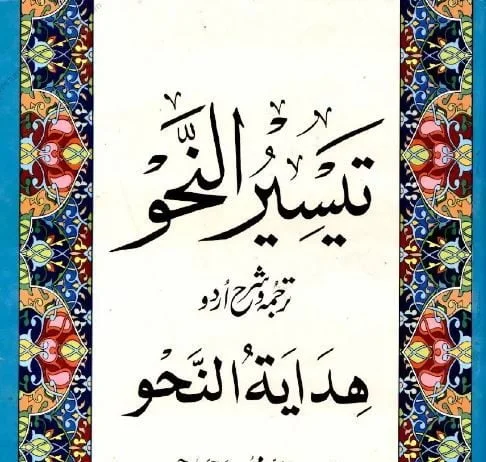 تَيْسِيْرُ النَّحْو
ترجمہ و شرح اُردو
هِدَايَةُ النَّحْو